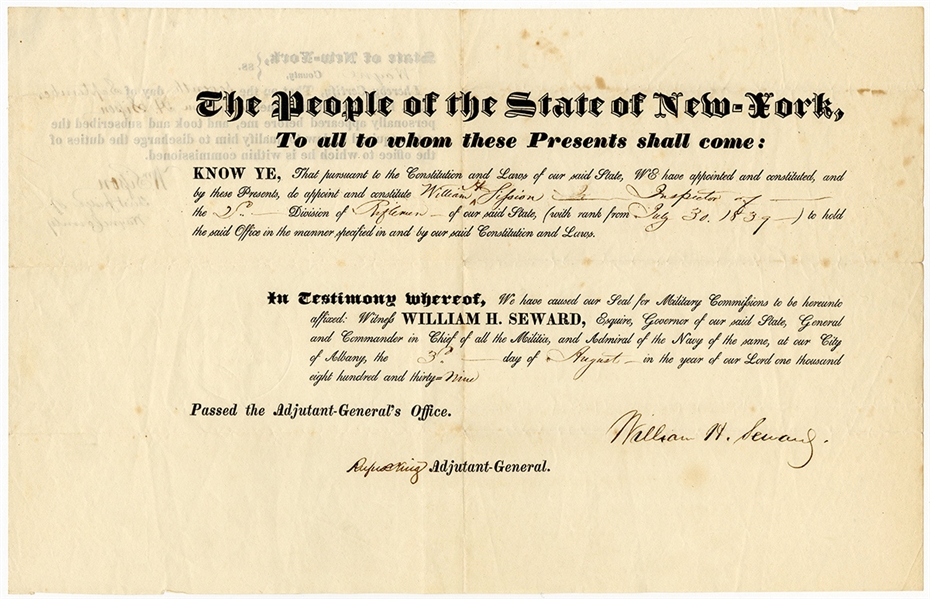 The People of the State of New-York,
To all to whom these Presents shall come:
KNOW YE, That pursuant to the Constitution and Laws of our said State, WE have appointed and constituted, and
by these Presents, do appoint and constitute William H Sisson Inspector of
the 2d. Division of Riflemen of our said State, (with rank from July 30. 1839 ) to hold
the said Office in the manner specified in and by our said Constitution and Laws.
In Testimony whereof, We have caused our Seal for Military Commissions to be hereunto
affixed: Witness WILLIAM H. SEWARD, Esquire, Governor of our said State, General
and Commander in Chief of all the Militia, and Admiral of the Navy of the same, at our City
of Albany, the 3d. day of August in the year of our Lord one thousand
eight hundred and thirty-nine
Passed the Adjutant-General's Office.
William H. Seward.
Rufus King Adjutant-General.
State of New-York, ss.
County,
day of September
personally appeared before me, and took and subscribed the
to discharge the duties of
the office to which he is within commissioned.